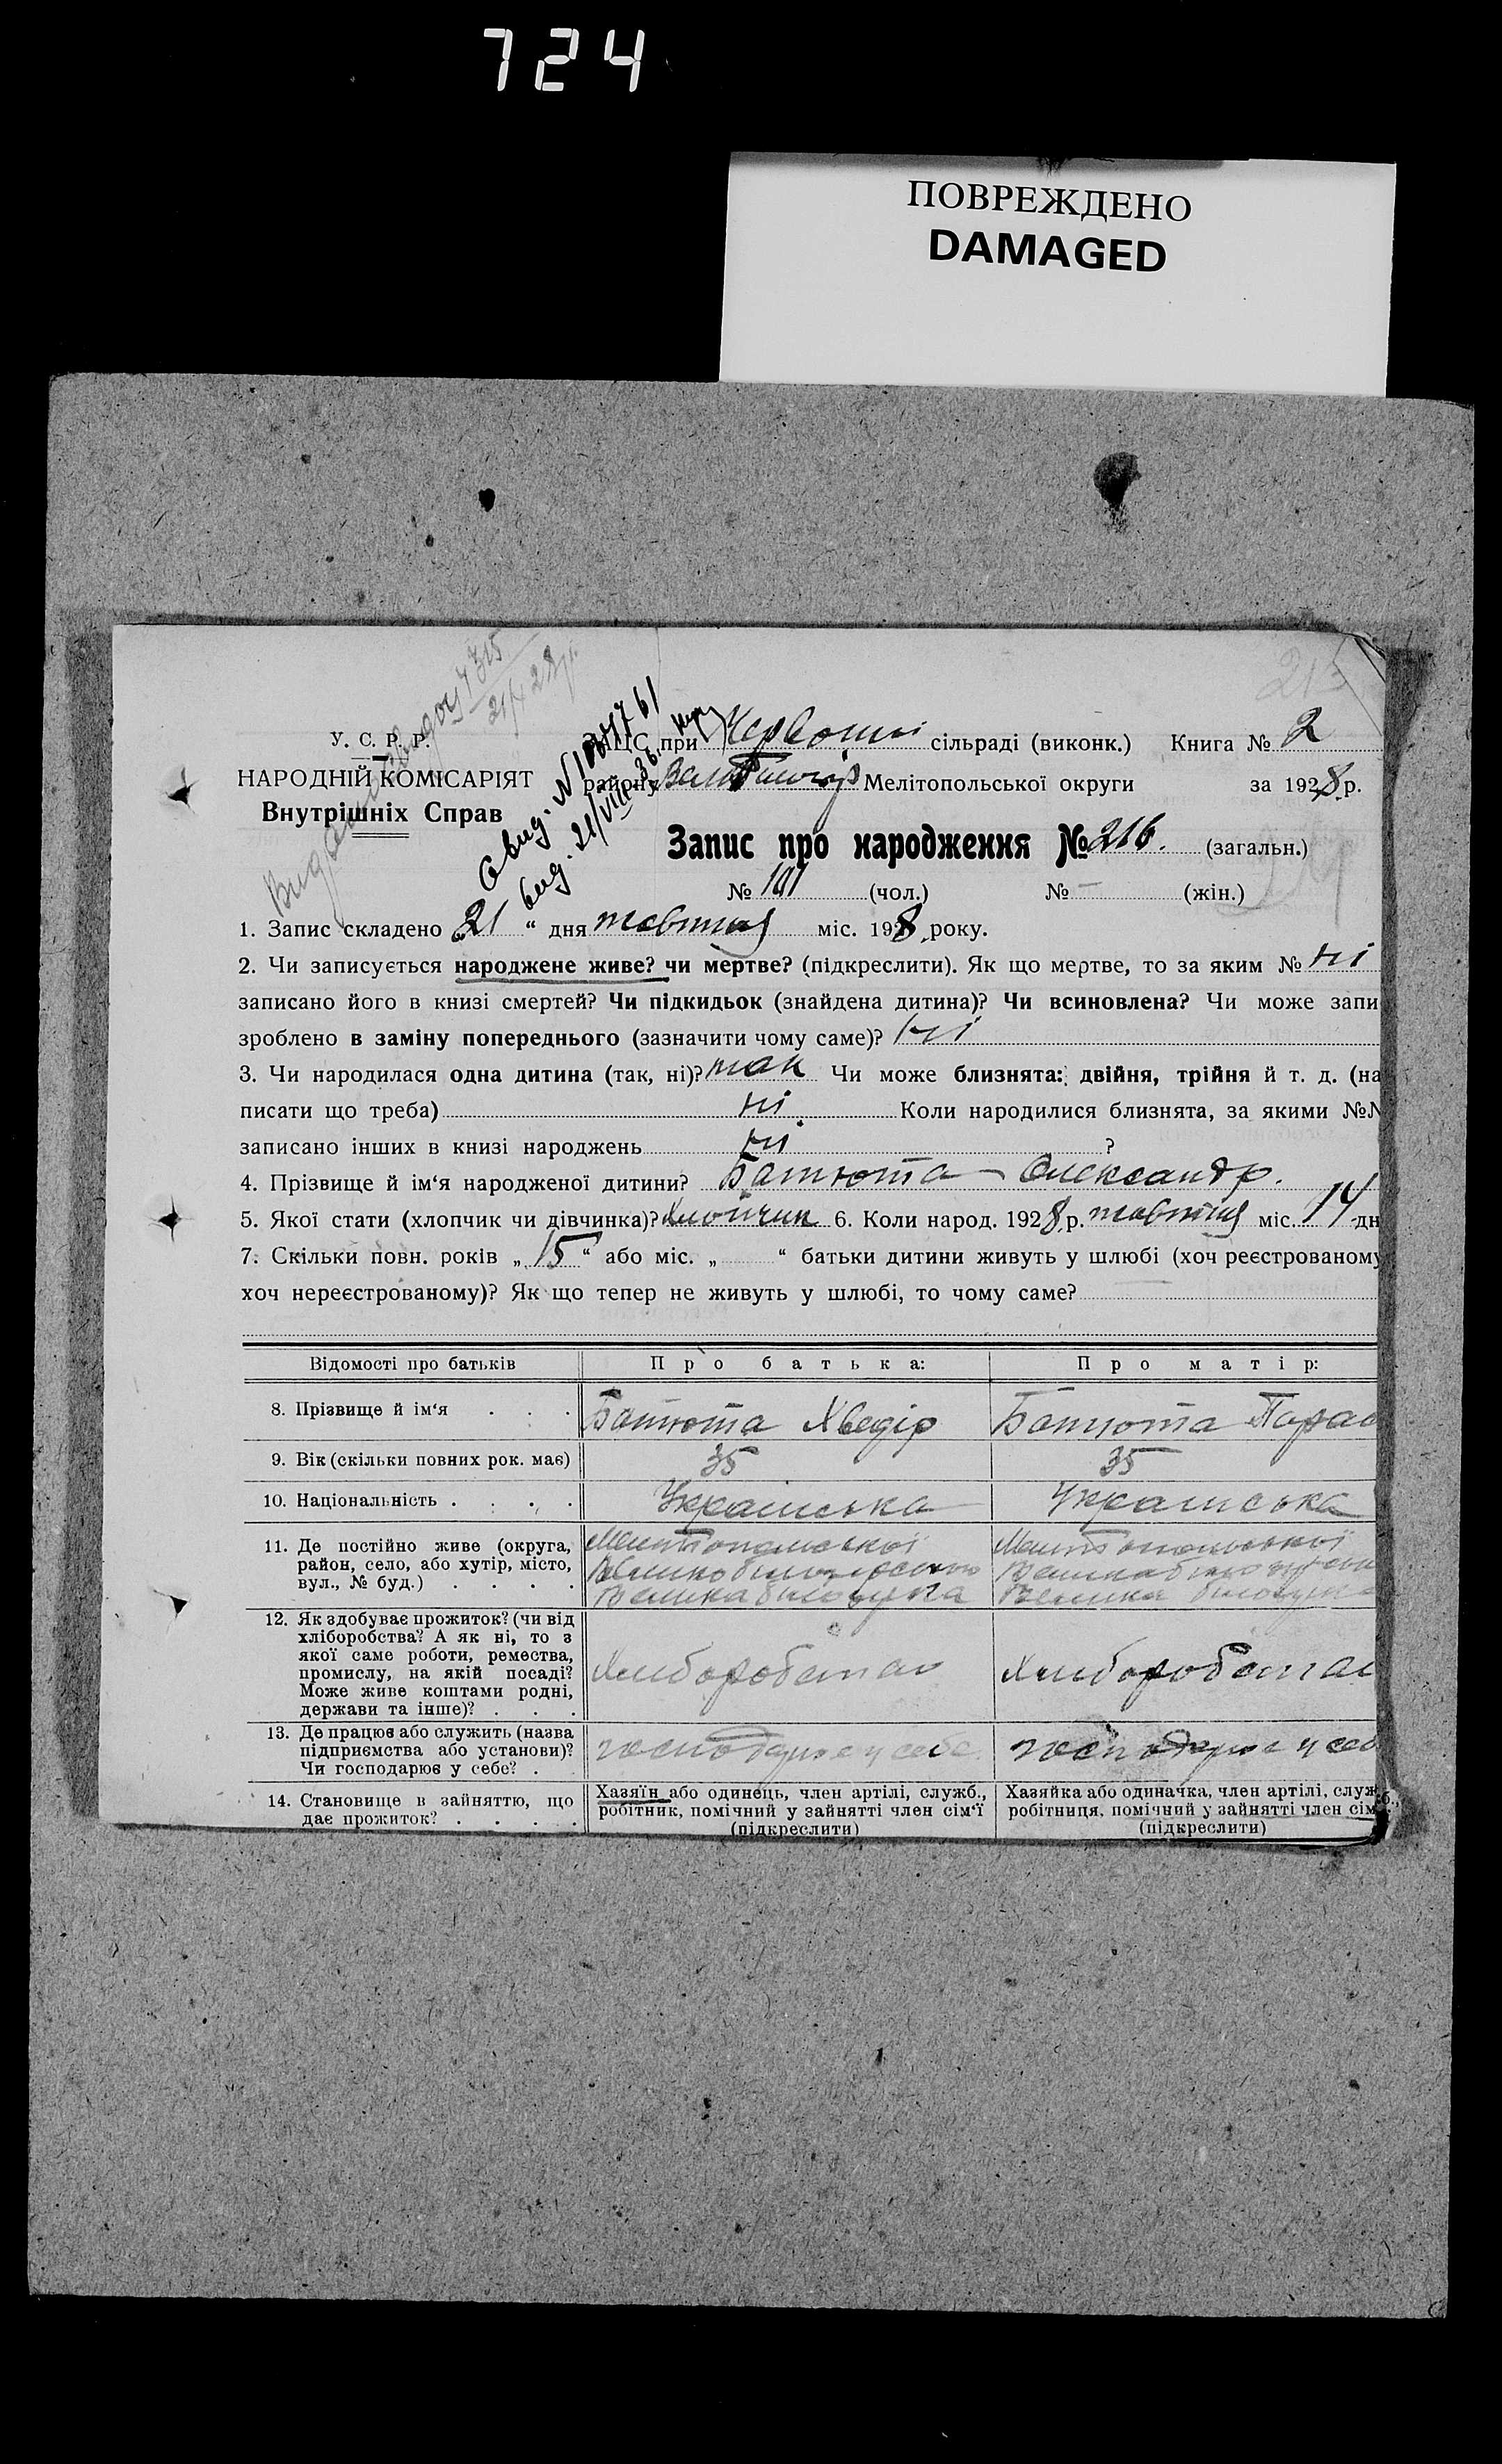 724
ПОВРЕЖДЕНО
DAMAGED
215
У. С. Р. Р.
НАРОДНІЙ КОМІСАРІЯТ
Внутрішніх Справ
ЗАЦС при Червоній сільраді (виконк.) Книга № 2
району Мелітопольської округи за 1928 р.
Запис про народження № 216. (загальн.)
№ 101 (чол.) № — (жін.)
1. Запис складено „21“ дня жовтня міс. 1928 року.
2. Чи записується народжене живе? чи мертве? (підкреслити). Як що мертве, то за яким № ні
записано його в книзі смертей? Чи підкидьок (знайдена дитина)? Чи всиновлена? Чи може запи
зроблено в заміну попереднього (зазначити чому саме)? ні
3. Чи народилася одна дитина (так, ні)? так Чи може близнята: двійня, трійня й т. д. (на
писати що треба) ні Коли народилися близнята, за якими №№
записано інших в книзі народжень ні ?
4. Прізвище й ім‘я народженої дитини? Батюта Олександр.
5. Якої стати (хлопчик чи дівчинка)? хлопчик 6. Коли народ. 1928 р. жовтня міс. 14 дн
7. Скільки повн. років „15“ або міс. „ “ батьки дитини живуть у шлюбі (хоч реєстрованому
хоч нереєстрованому)? Як що тепер не живуть у шлюбі, то чому саме?
Відомості про батьків Про батька: Про матір:
8. Прізвище й ім‘я Батюта Хведір Батюта Парас
9. Вік (скільки повних рок. має) 35 35
10. Національність Українська Українська
11. Де постійно живе (округа, район, село, або хутір, місто, вул., № буд.)
Мелітопольської Мелітопольської
Великобілозерського Великобілозерськ
Велика білозерка Велика білозерка
12. Як здобуває прожиток? (чи від
хліборобства? А як ні, то з
якої саме роботи, ремества,
промислу, на якій посаді?
Може живе коштами родні,
держави та інше)?
Хлиборобство Хлиборобство
13. Де працює або служить (назва
підприємства або установи)?
Чи господарює у себе?
господарює у себе господарює у себ
14. Становище в зайняттю, що
дає прожиток?
Хазяїн або одинець, член артілі, служб.,
робітник, помічний у зайнятті член сім‘ї
(підкреслити)
Хазяйка або одиначка, член артілі, служб.,
робітниця, помічний у зайнятті член сім
(підкреслити)